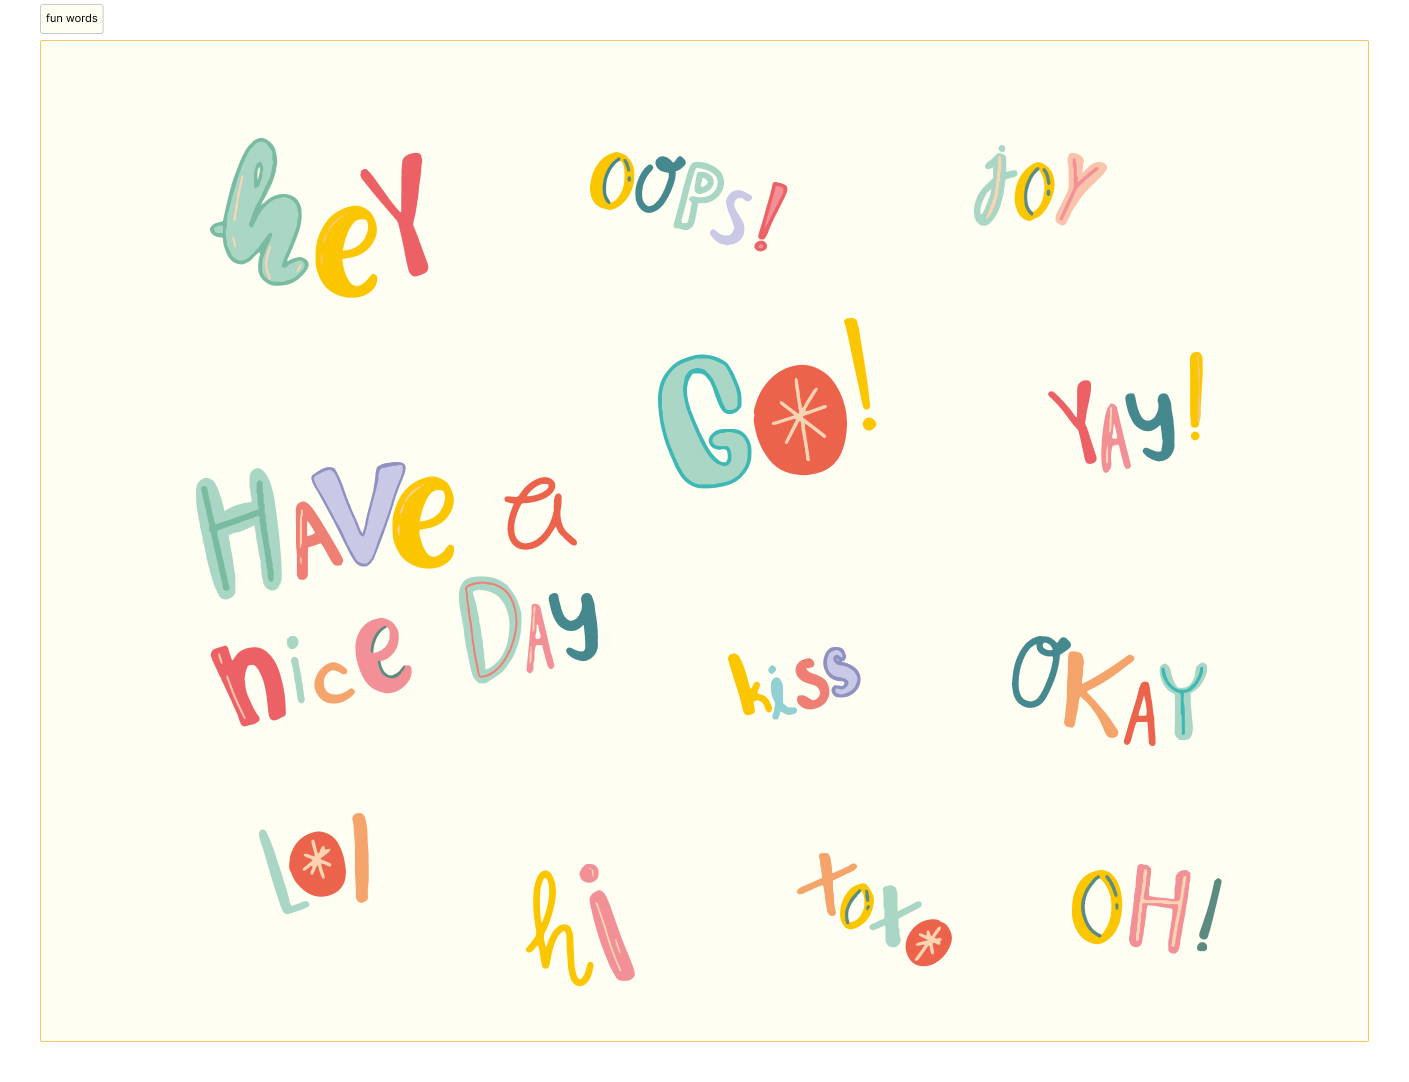 fun words
heY
OOPS!
joY
GO!
YAy!
HAVe a
nice DAy
kiss
OKAY
LOl
hi
xoxo
OH!